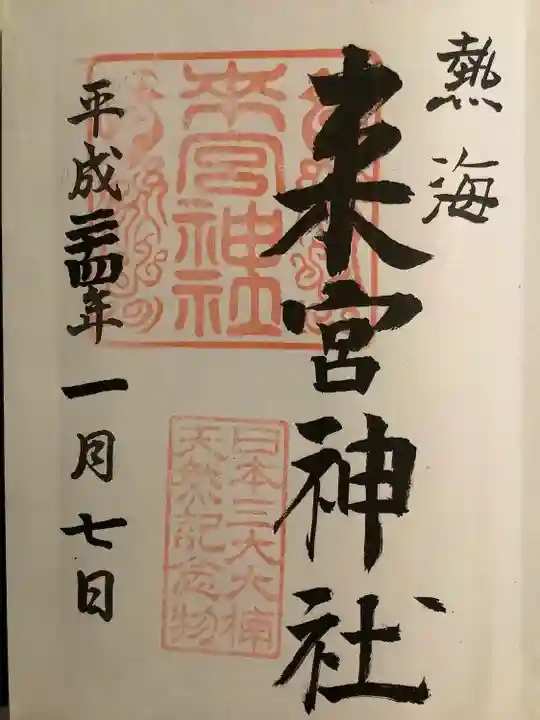 熱海
来宮神社
平成二十四年一月七日
来宮神社
日本三大大楠
天然記念物